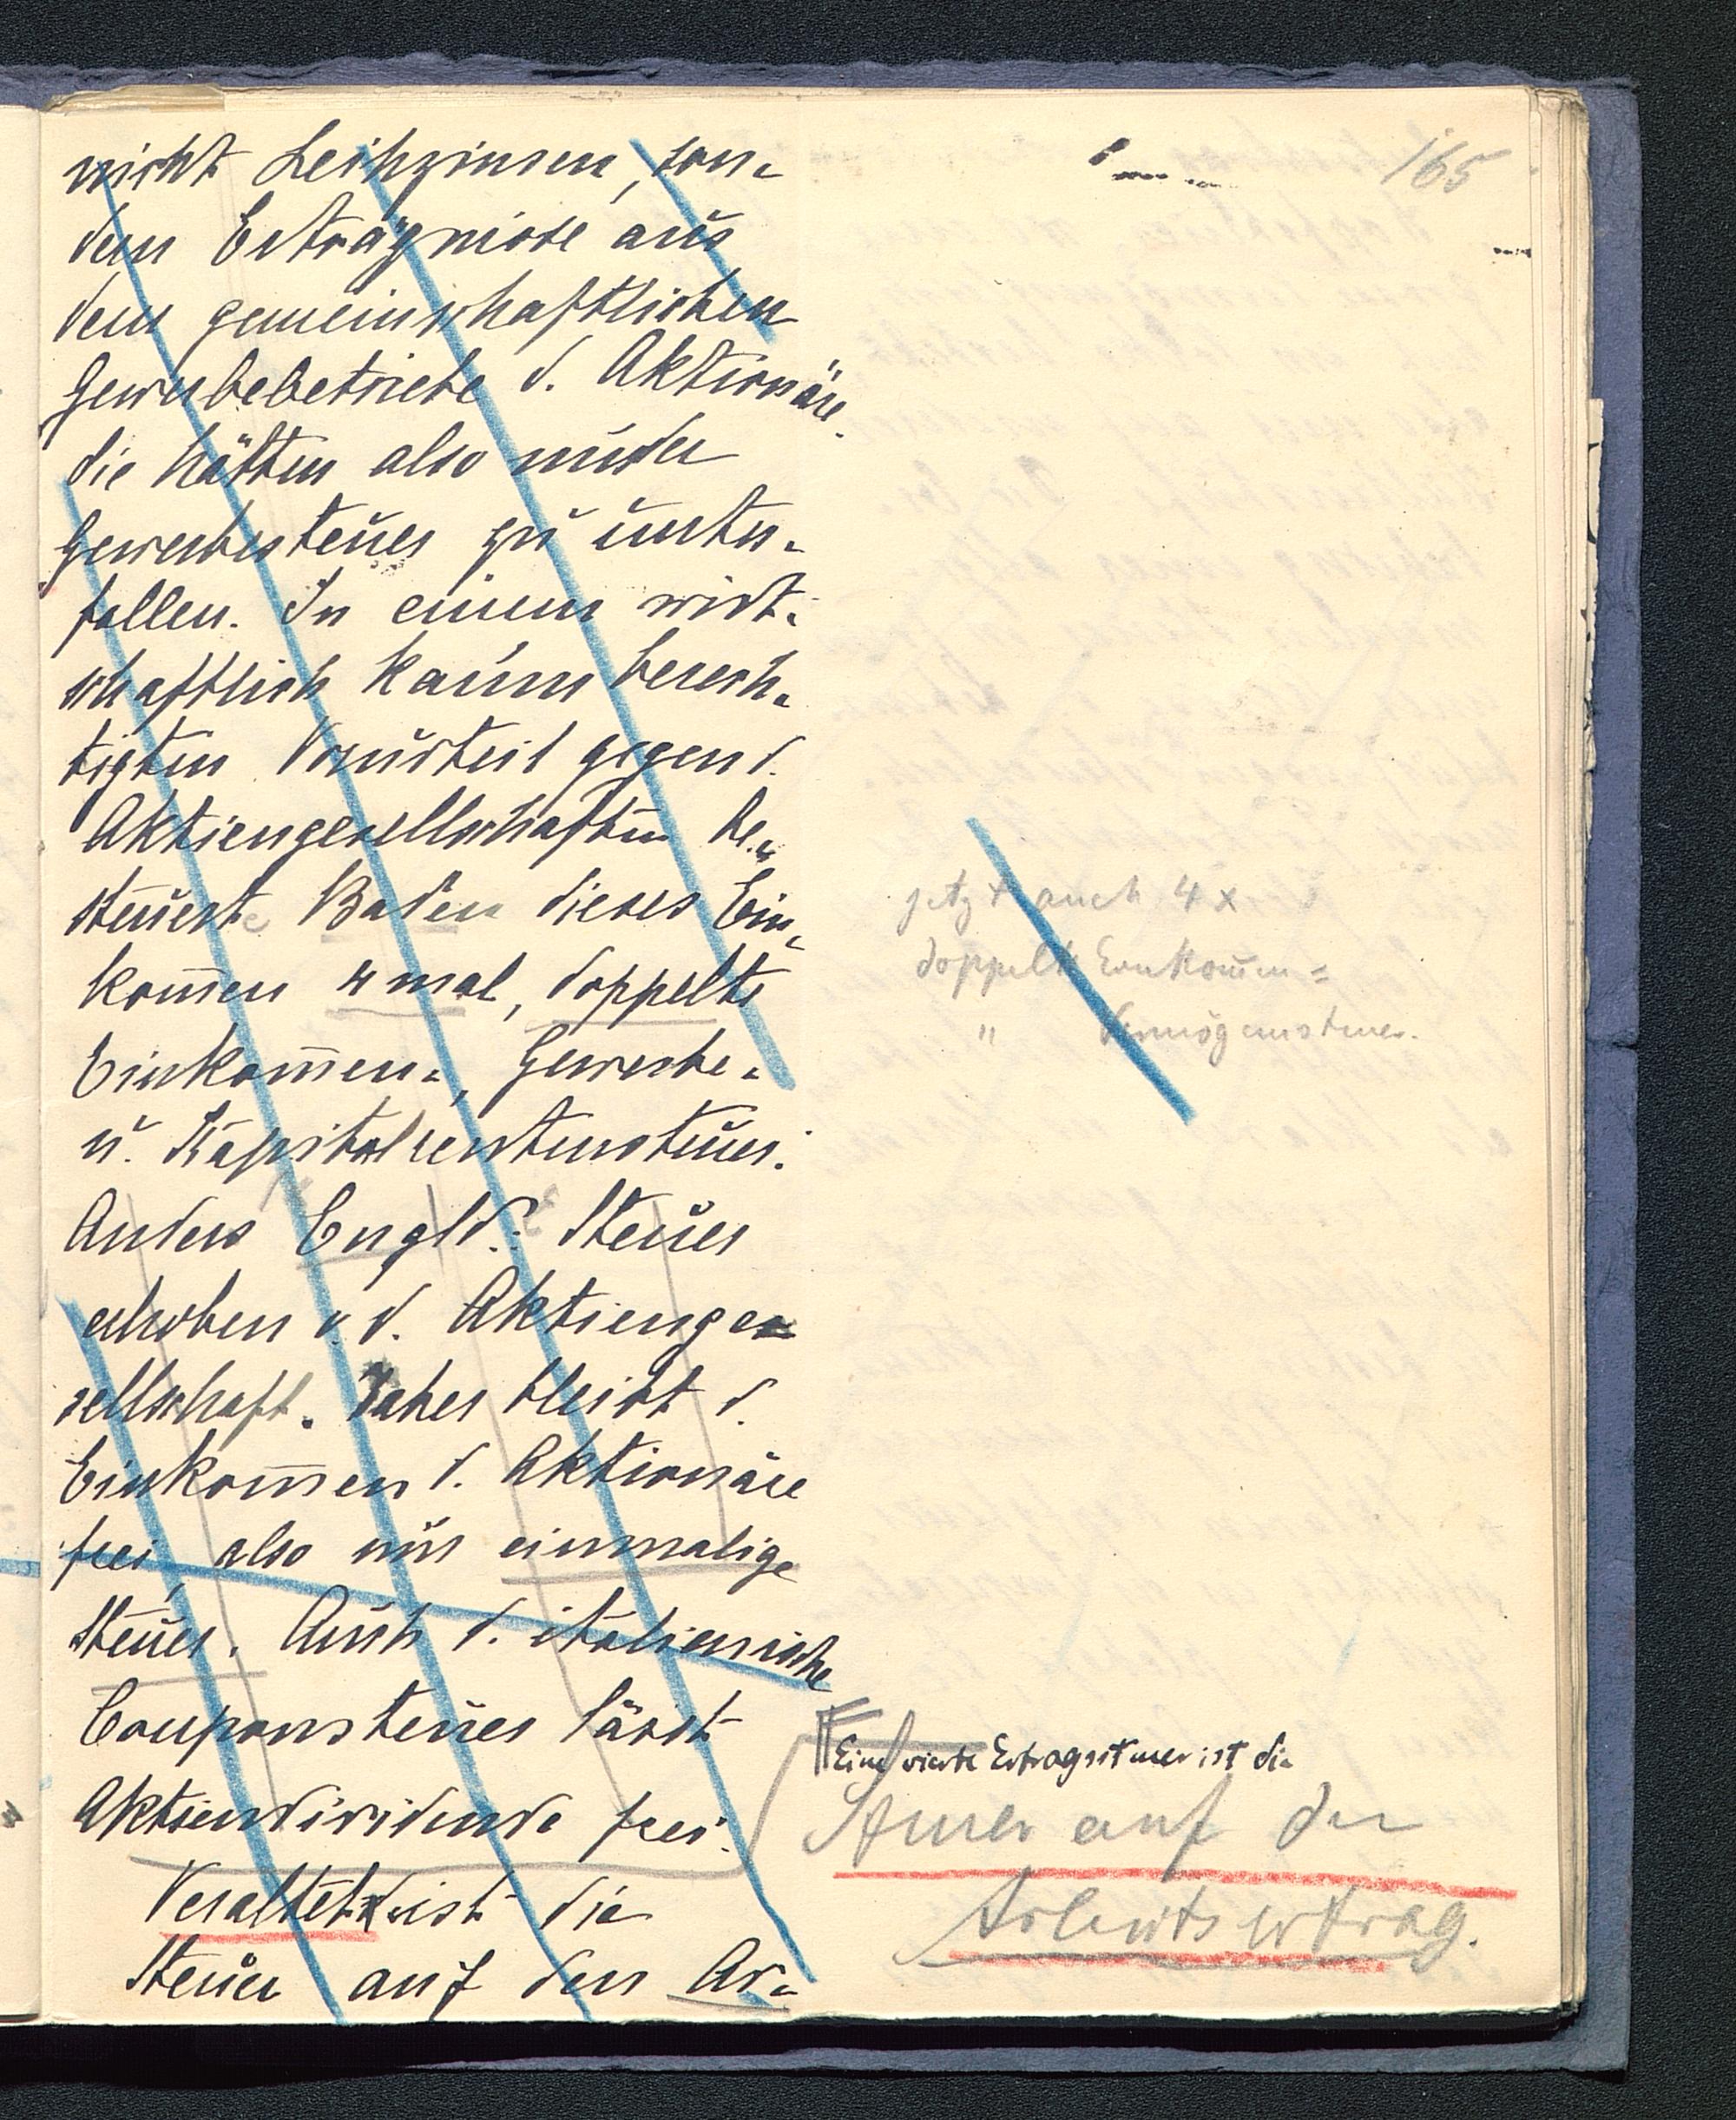 165
nicht Leihzinsen, son-
dern Erträgnisse aus
dem gemeinschaftlichen
Gewerbebetriebe d. Aktionäre.
Sie hätten also nur der
Gewerbesteuer zu unter-
fallen. In einem wirt-
schaftlich kaum berech-
tigten Vorurteil gegen d.
Aktiengesellschaften be-
steuerte Baden dieses Ein-
kom̅en 4 mal, doppelte
Einkom̅en-, Gewerbe-
u. Kapitalrentensteuer.
Anders Engld.: Steuer
erhoben v. d. Aktienge-
sellschaft. Daher bleibt d.
Einkom̅en d. Aktionäre
frei, also nur einmalige
Steuer. Auch d. italienische
Couponsteuer lässt
Aktiendividende frei.
Veraltet ist die
Steuer auf den Ar-
jetzt auch 4 x
doppelte Einkom̅en =
" Vermögensteuer.
Eine vierte Ertragssteuer ist die
Steuer auf den
Arbeitsertrag.